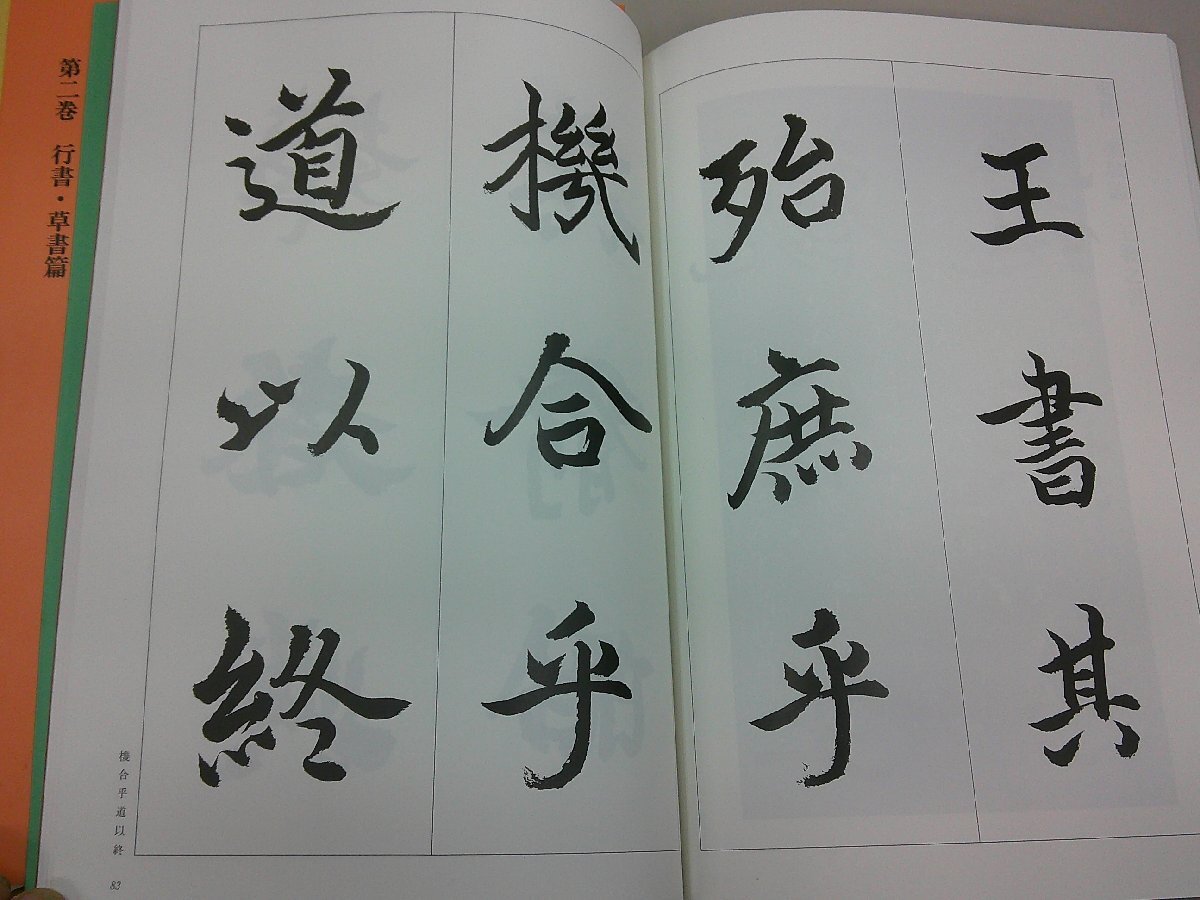 王書其
殆庶乎
機合乎
道以終
機合乎道以終
83
第二巻 行書・草書篇